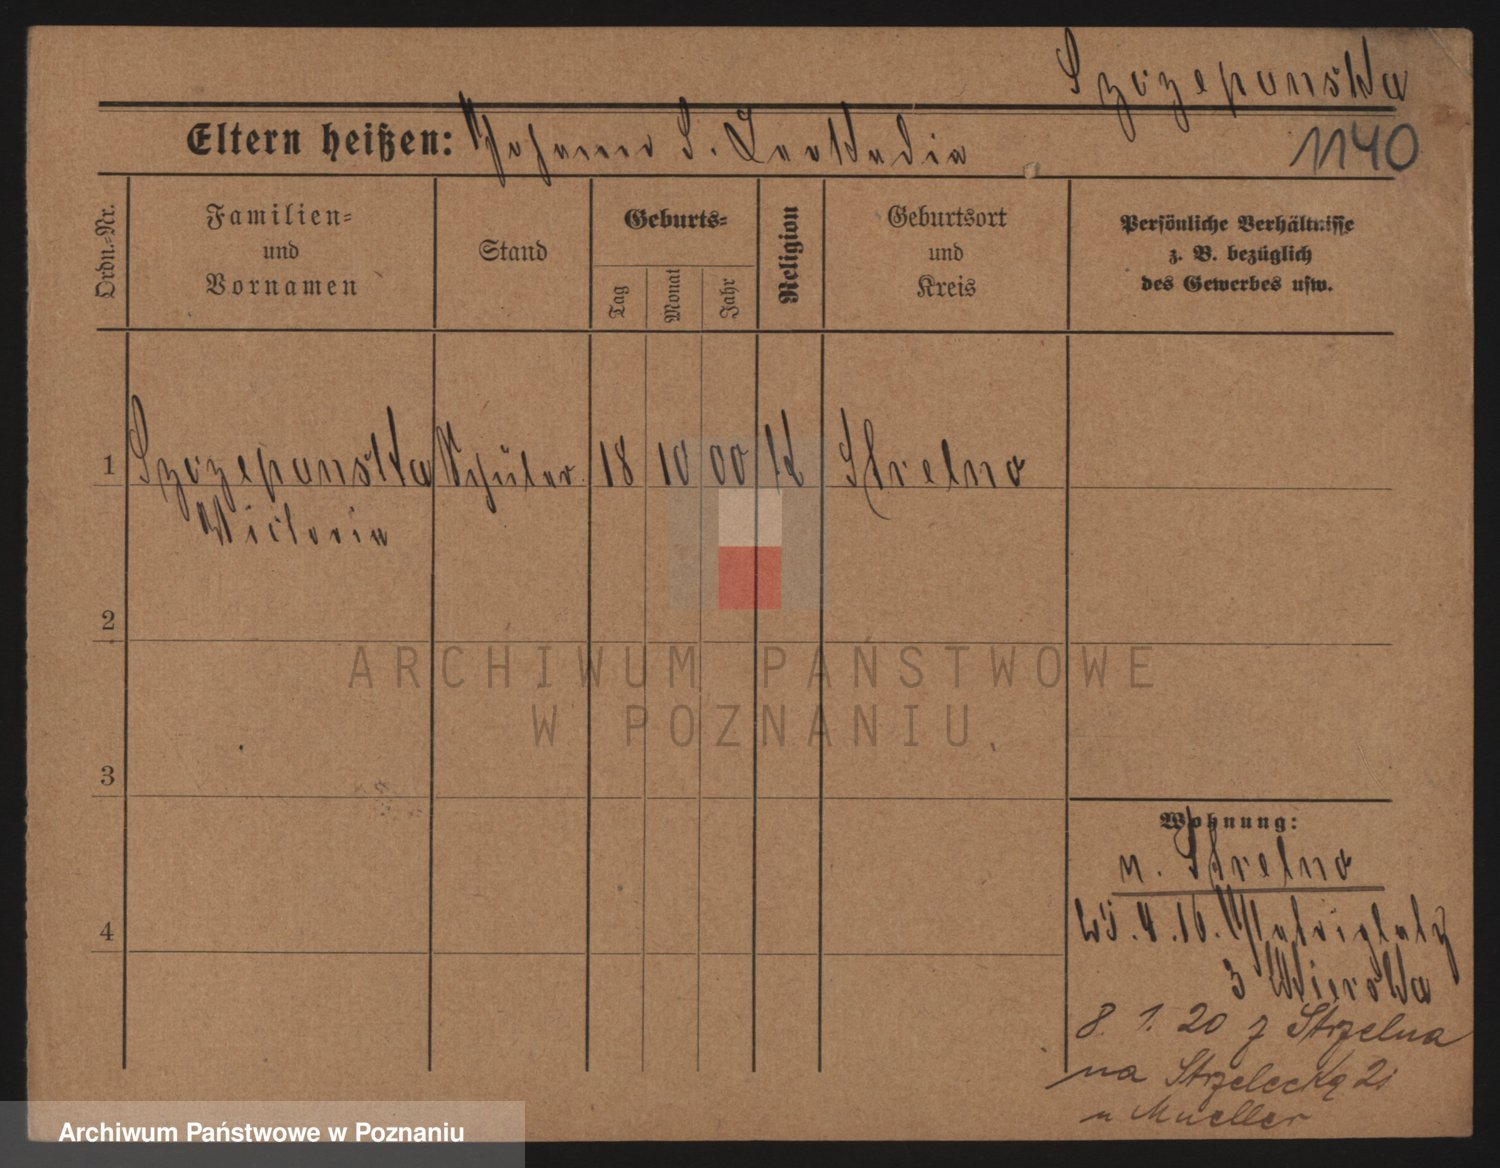 Szczepanska
Eltern heißen: Johann S. Leokadia
1140
Ordn.=Nr.
Familien=
und
Vornamen
Stand
Geburts=
Tag
Monat
Jahr
Religion
Geburtsort
und
Kreis
Persönliche Verhältnisse
z. B. bezüglich
des Gewerbes usw.
1 Szczepanska Schüler 18 10 00 K Strelno
Victoria
2
3
4
Wohnung:
n. Strelno
4.16.
3
8. 1. 20 z Strzelna
na Strzelecką 21
u Mueller
ARCHIWUM PAŃSTWOWE
W POZNANIU
Archiwum Państwowe w Poznaniu